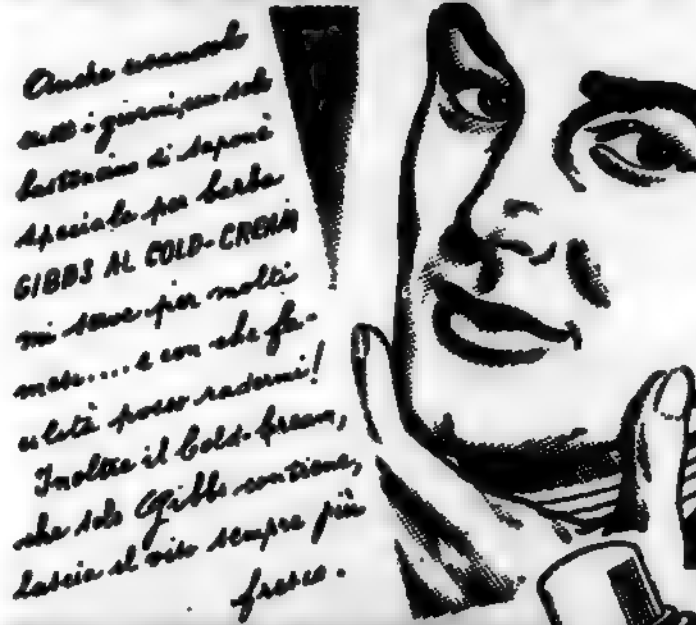 Anche usandolo
tutti i giorni, un solo
bastoncino di sapone
speciale per barba
GIBBS AL COLD-CREAM
mi serve per molti
mesi.... e con che fa-
cilità posso radermi!
Inoltre il Cold-Cream,
che solo Gibbs contiene,
lascia il viso sempre più
fresco.